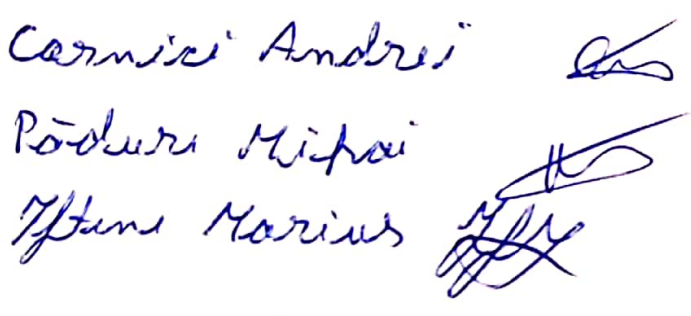 Carnici Andrei
Păduri Mihai
Ifteni Marius